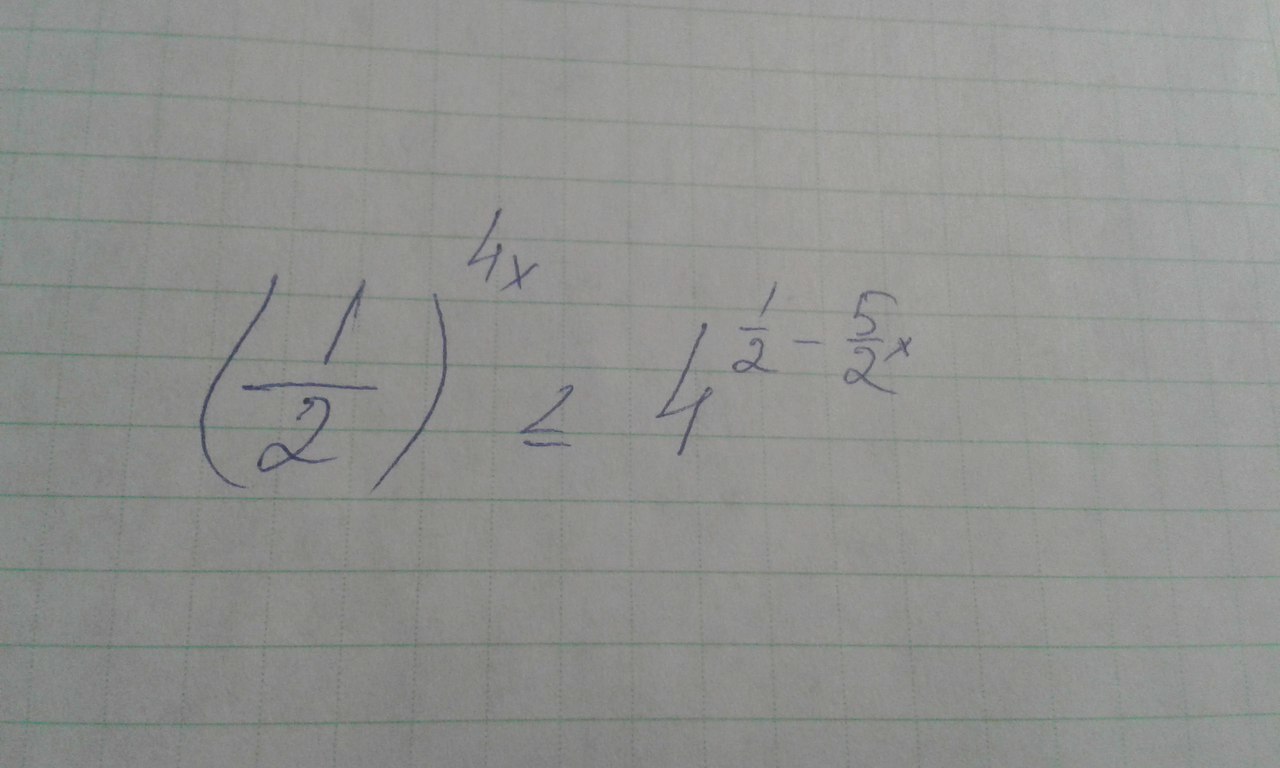 (1/2)^(4x) ≤ 4^(1/2 - 5/2 x)